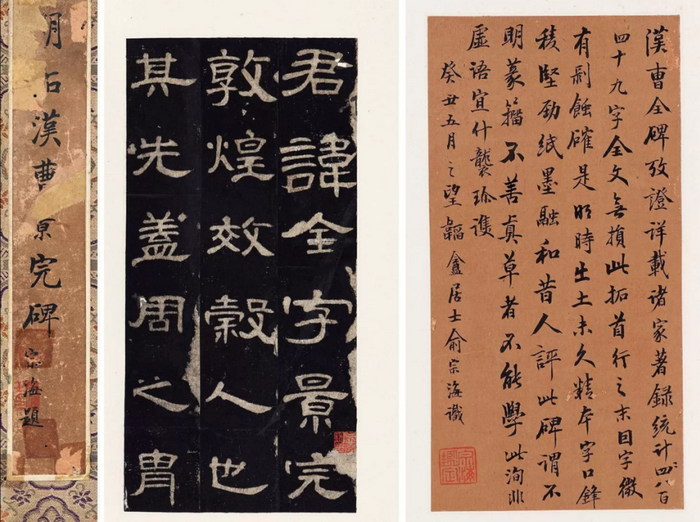 明拓漢曹景完碑
宗海題
君諱全字景完
敦煌效穀人也
其先蓋周之胄
漢曹全碑攷證詳載諸家著錄統計四八百
四十九字全文無損此拓首行之末因字微
有剝蝕確是明時出土未久精本字口鋒
稜堅勁紙墨融和昔人評此碑謂不
明篆籀不善真草者不能學此洵非
虛語宜什襲珍護
癸丑五月之望韞盦居士俞宗海識